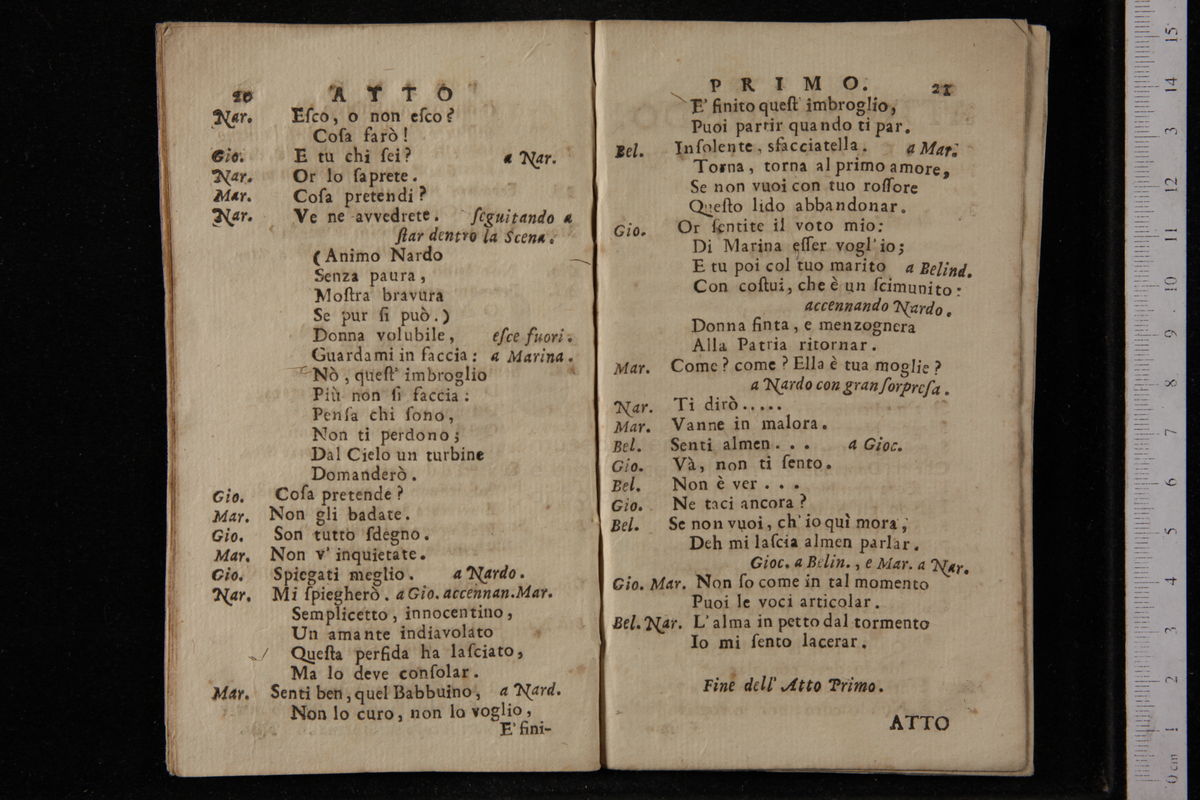 20 ATTO
Nar. Eſco, o non eſco?
Coſa farò!
Gio. E tu chi ſei? a Nar.
Nar. Or lo ſaprete.
Mar. Coſa pretendi?
Nar. Ve ne avvedrete. ſeguitando a
ſtar dentro la Scena.
(Animo Nardo
Senza paura,
Moſtra bravura
Se pur ſi può.)
Donna volubile, eſce fuori.
Guardami in faccia: a Marina.
Nò, queſt' imbroglio
Più non ſi faccia:
Penſa chi ſono,
Non ti perdono;
Dal Cielo un turbine
Domanderò.
Gio. Coſa pretende?
Mar. Non gli badate.
Gio. Son tutto ſdegno.
Mar. Non v' inquietate.
Gio. Spiegati meglio. a Nardo.
Nar. Mi ſpiegherò. a Gio. accennan. Mar.
Semplicetto, innocentino,
Un amante indiavolato
Queſta perfida ha laſciato,
Ma lo deve conſolar.
Mar. Senti ben, quel Babbuino, a Nard.
Non lo curo, non lo voglio,
E' fini-
PRIMO. 21
E' finito queſt' imbroglio,
Puoi partir quando ti par.
Bel. Inſolente, sfacciatella. a Mar.
Torna, torna al primo amore,
Se non vuoi con tuo roſſore
Queſto lido abbandonar.
Gio. Or ſentite il voto mio:
Di Marina eſſer vogl' io;
E tu poi col tuo marito a Belind.
Con coſtui, che è un ſcimunito:
accennando Nardo.
Donna finta, e menzognera
Alla Patria ritornar.
Mar. Come? come? Ella è tua moglie?
a Nardo con gran ſorpreſa.
Nar. Ti dirò.....
Mar. Vanne in malora.
Bel. Senti almen... a Gioc.
Gio. Và, non ti ſento.
Bel. Non è ver...
Gio. Ne taci ancora?
Bel. Se non vuoi, ch' io quì mora,
Deh mi laſcia almen parlar.
Gioc. a Belin., e Mar. a Nar.
Gio. Mar. Non ſo come in tal momento
Puoi le voci articolar.
Bel. Nar. L' alma in petto dal tormento
Io mi ſento lacerar.
Fine dell' Atto Primo.
ATTO
0 cm 1 2 3 4 5 6 7 8 9 10 11 12 13 14 15